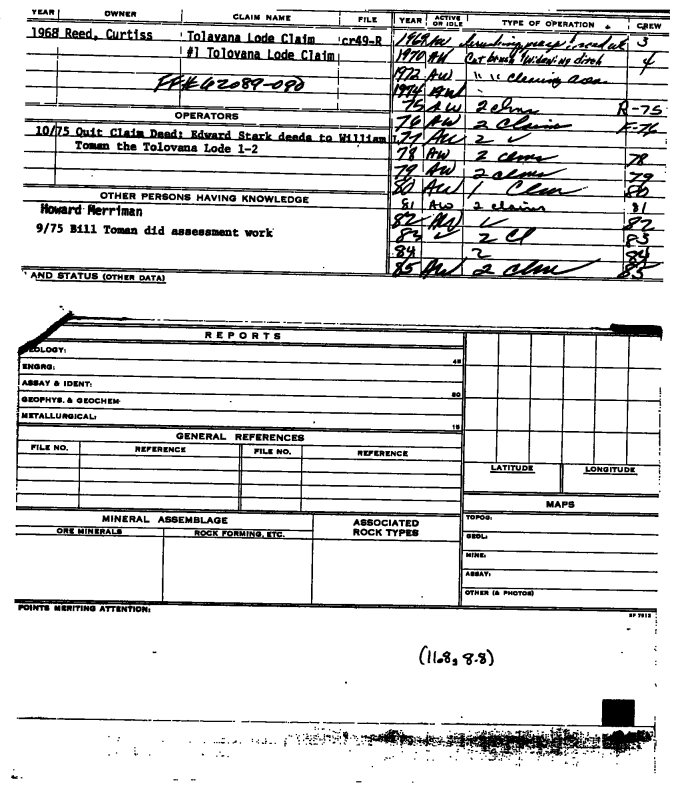 YEAR OWNER CLAIM NAME FILE YEAR ACTIVE OR IDLE TYPE OF OPERATION CREW
1968 Reed, Curtiss Tolavana Lode Claim cr49-R 1969 AW 3
#1 Tolovana Lode Claim 1970 AW Cut brush widening ditch 4
1972 AW " " clearing area
FF# 62089-090 1974 AW
75 AW 2 clms R-75
OPERATORS 76 AW 2 Claim F-76
10/75 Quit Claim Deed: Edward Stark deeds to William 77 AW 2 ✓
Toman the Tolovana Lode 1-2 78 AW 2 clms 78
79 AW 2 clms 79
OTHER PERSONS HAVING KNOWLEDGE 80 AW 1 Clm 80
Howard Merriman 81 AW 2 claims 81
82 AW ✓ 82
9/75 Bill Toman did assessment work 83 ✓ 2 Cl 83
84 2 84
AND STATUS (OTHER DATA) 85 AW 2 clm 85
REPORTS
GEOLOGY:
ENGRG:
ASSAY & IDENT:
GEOPHYS. & GEOCHEM
METALLURGICAL:
GENERAL REFERENCES
FILE NO. REFERENCE FILE NO. REFERENCE
LATITUDE LONGITUDE
MAPS
MINERAL ASSEMBLAGE ASSOCIATED ROCK TYPES TOPOG:
ORE MINERALS ROCK FORMING, ETC. GEOL:
MINE:
ASSAY:
OTHER (& PHOTOS)
POINTS MERITING ATTENTION:
(11.8, 8.8)